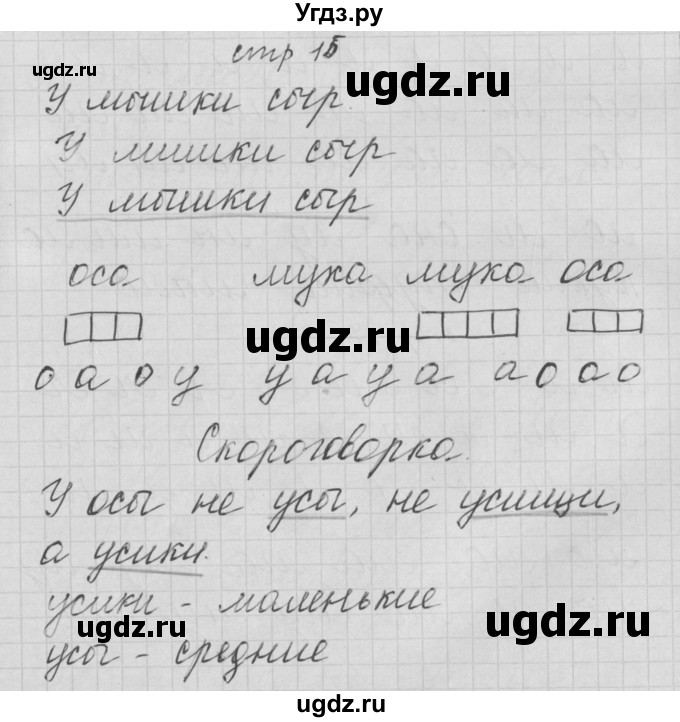 Угдз.ру
стр 15
ugdz.ru
ugdz.ru
У мышки сыр.
У мишки сыр
У мышки сыр
ugdz.ru
оса муха муха оса
ugdz.ru
ugdz.ru
о а о у у а у а а о а о
Скороговорка.
ugdz.ru
У осы не усы, не усищи,
а усики.
ugdz.ru
усики - маленькие
ugdz.ru
ugdz.ru
усы - средние
ugdz.ru